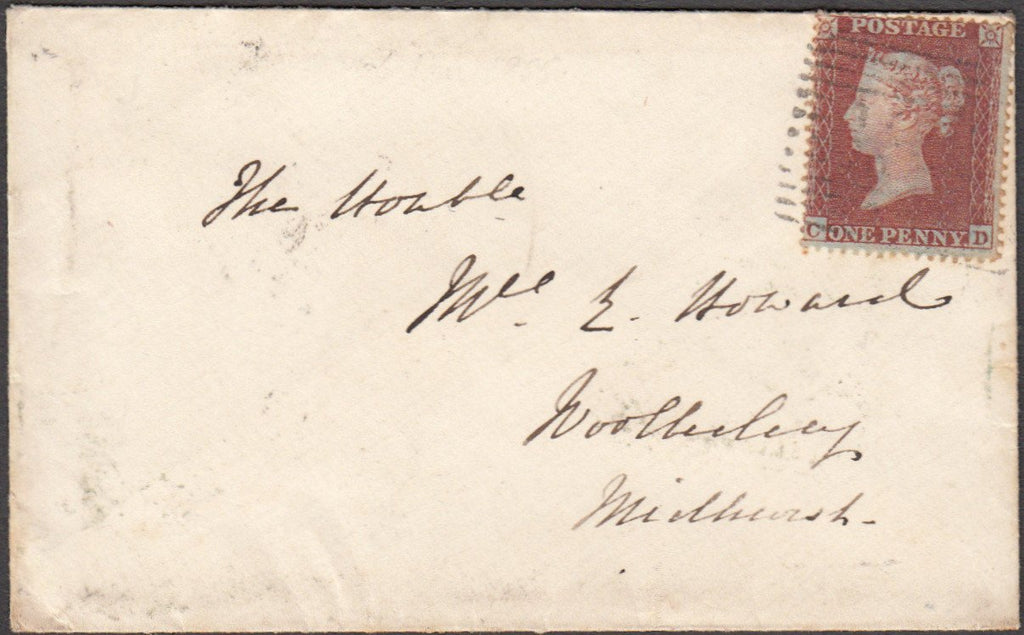 POSTAGE
C ONE PENNY D
The Honble
Mrs. E. Howard
Woolbeding
Midhurst.